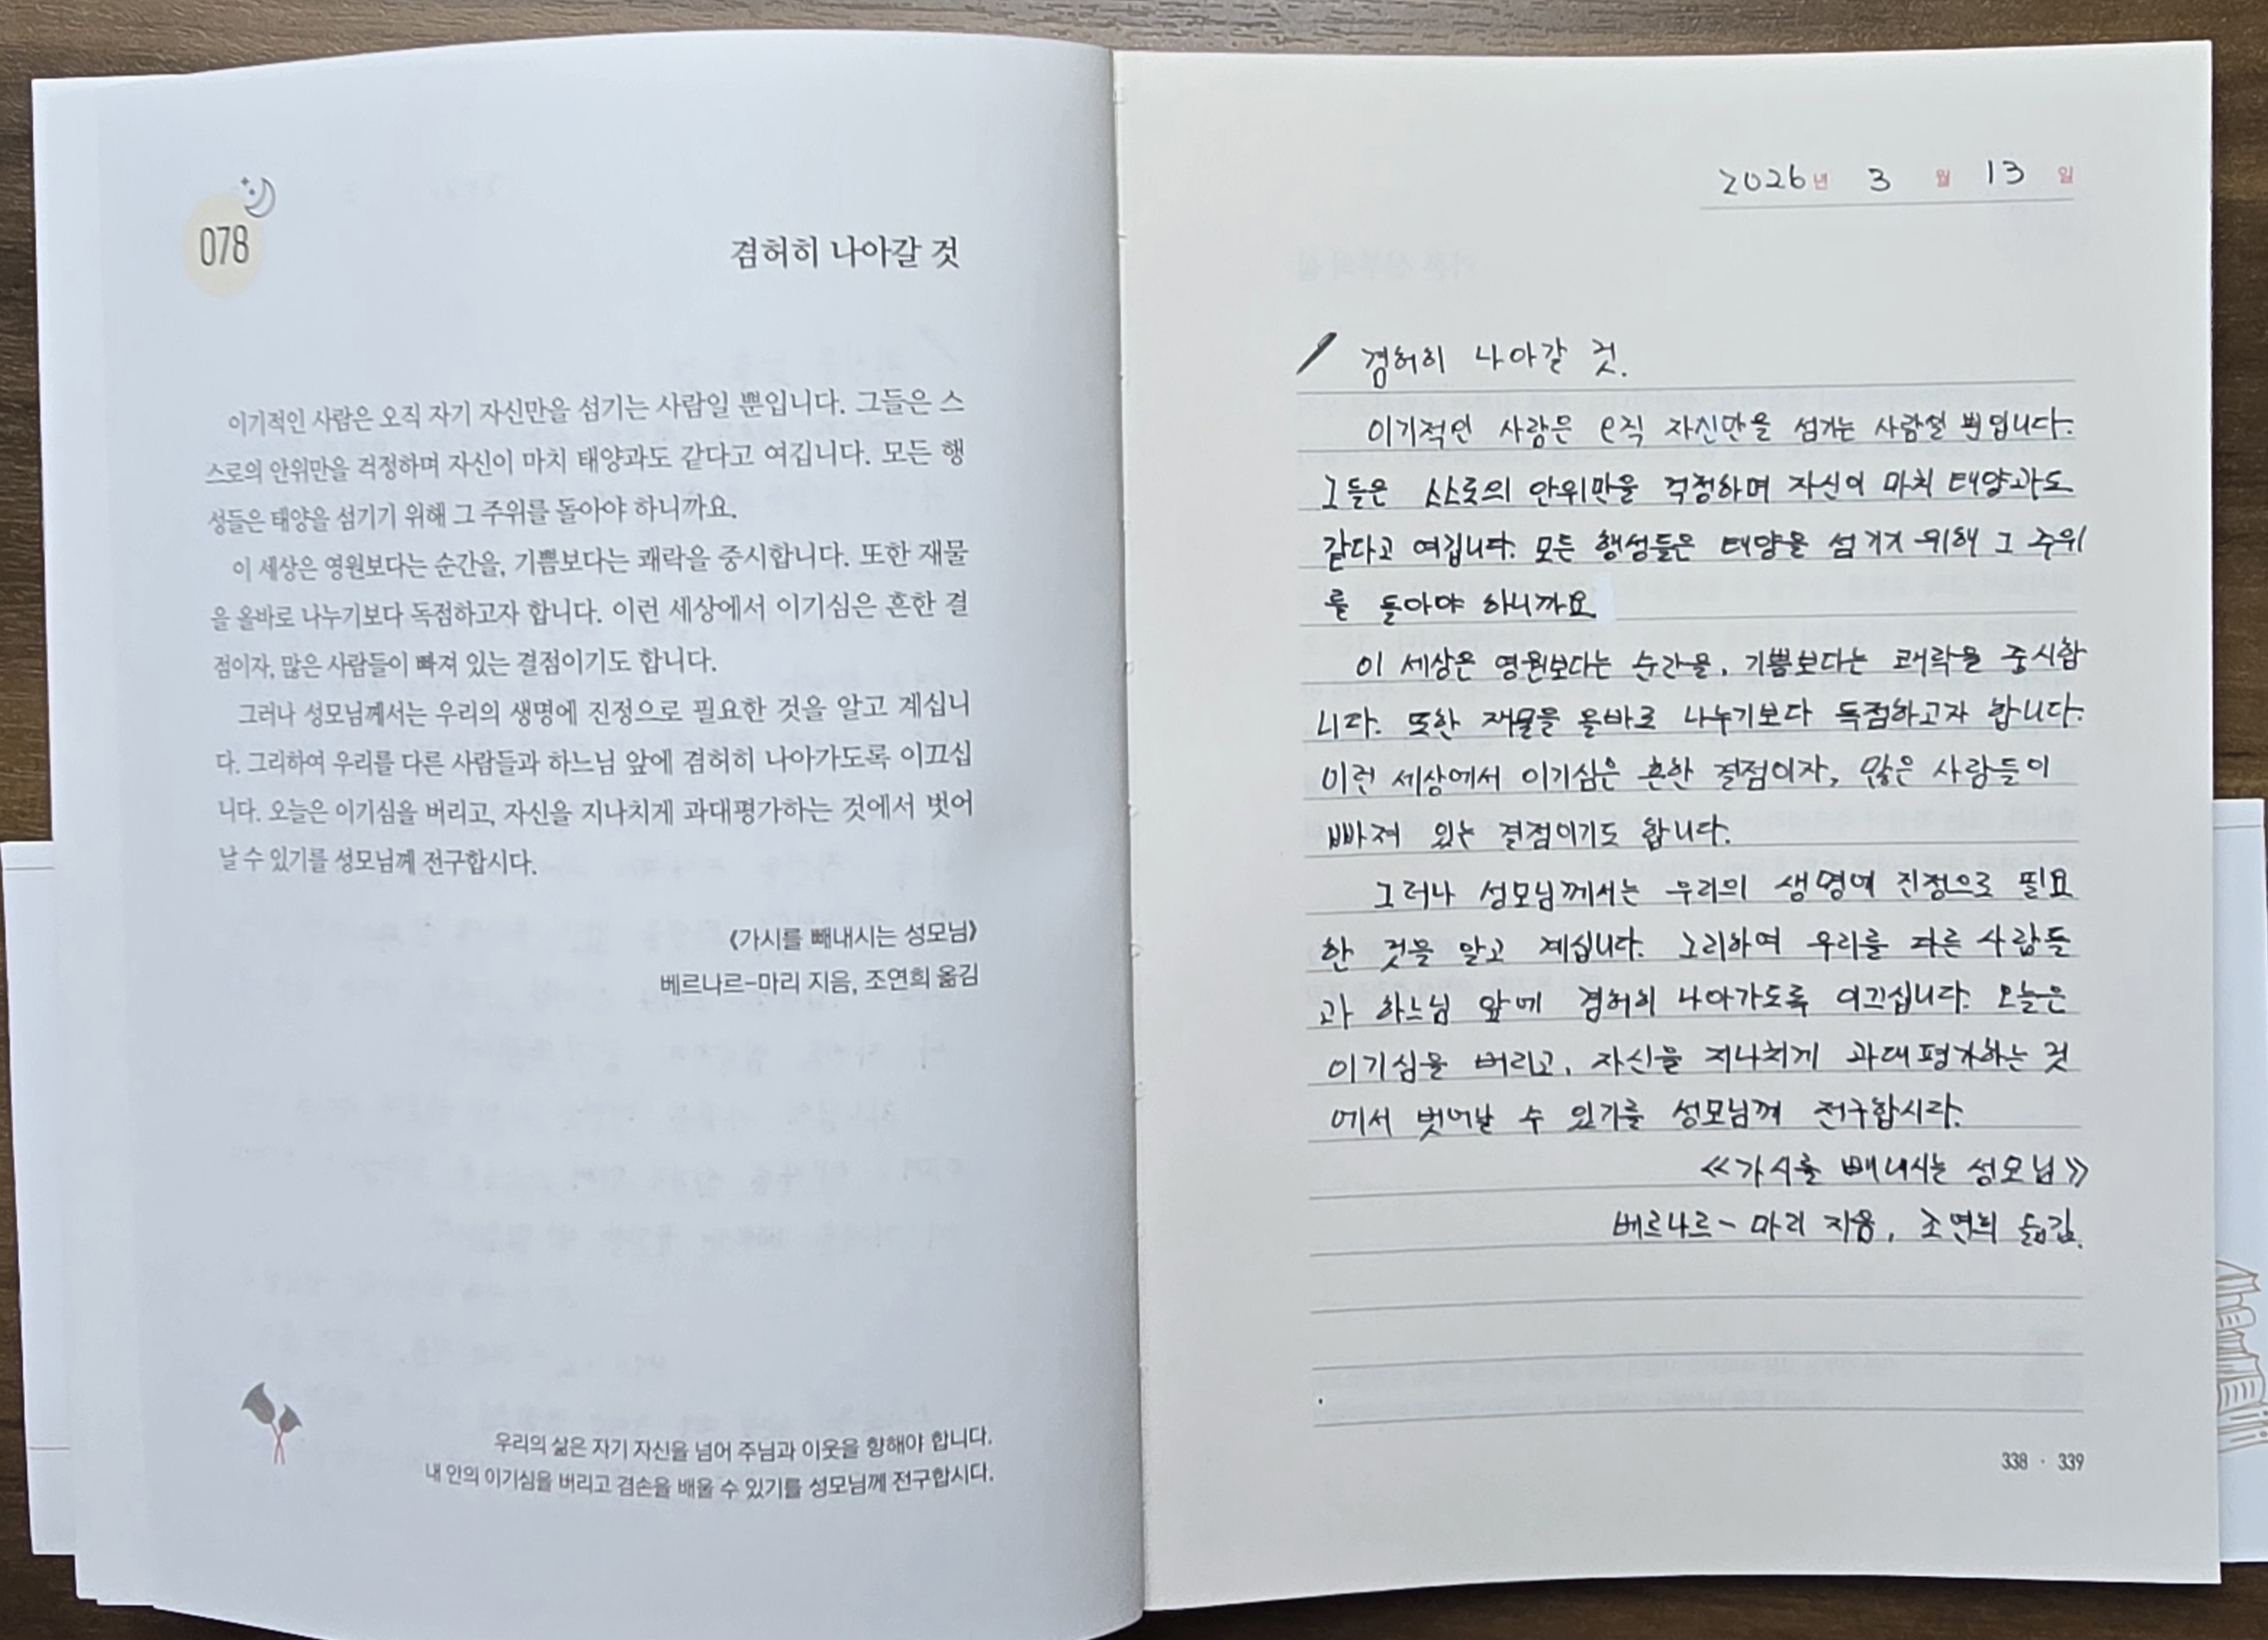 078
겸허히 나아갈 것
이기적인 사람은 오직 자기 자신만을 섬기는 사람일 뿐입니다. 그들은 스
스로의 안위만을 걱정하며 자신이 마치 태양과도 같다고 여깁니다. 모든 행
성들은 태양을 섬기기 위해 그 주위를 돌아야 하니까요.
이 세상은 영원보다는 순간을, 기쁨보다는 쾌락을 중시합니다. 또한 재물
을 올바로 나누기보다 독점하고자 합니다. 이런 세상에서 이기심은 흔한 결
점이자, 많은 사람들이 빠져 있는 결점이기도 합니다.
그러나 성모님께서는 우리의 생명에 진정으로 필요한 것을 알고 계십니
다. 그리하여 우리를 다른 사람들과 하느님 앞에 겸허히 나아가도록 이끄십
니다. 오늘은 이기심을 버리고, 자신을 지나치게 과대평가하는 것에서 벗어
날 수 있기를 성모님께 전구합시다.
《가시를 빼내시는 성모님》
베르나르-마리 지음, 조연희 옮김
우리의 삶은 자기 자신을 넘어 주님과 이웃을 향해야 합니다.
내 안의 이기심을 버리고 겸손을 배울 수 있기를 성모님께 전구합시다.
2026년 3월 13일
겸허히 나아갈 것.
이기적인 사람은 오직 자신만을 섬기는 사람일 뿐입니다.
그들은 스스로의 안위만을 걱정하며 자신이 마치 태양과도
같다고 여깁니다. 모든 행성들은 태양을 섬기기 위해 그 주위
를 돌아야 하니까요
이 세상은 영원보다는 순간을, 기쁨보다는 쾌락을 중시합
니다. 또한 재물을 올바로 나누기보다 독점하고자 합니다.
이런 세상에서 이기심은 흔한 결점이자, 많은 사람들이
빠져 있는 결점이기도 합니다.
그러나 성모님께서는 우리의 생명에 진정으로 필요
한 것을 알고 계십니다. 그리하여 우리를 다른 사람들
과 하느님 앞에 겸허히 나아가도록 이끄십니다. 오늘은
이기심을 버리고, 자신을 지나치게 과대평가하는 것
에서 벗어날 수 있기를 성모님께 전구합시다.
《가시를 빼내시는 성모님》
베르나르-마리 지음, 조연희 옮김.
338 · 339